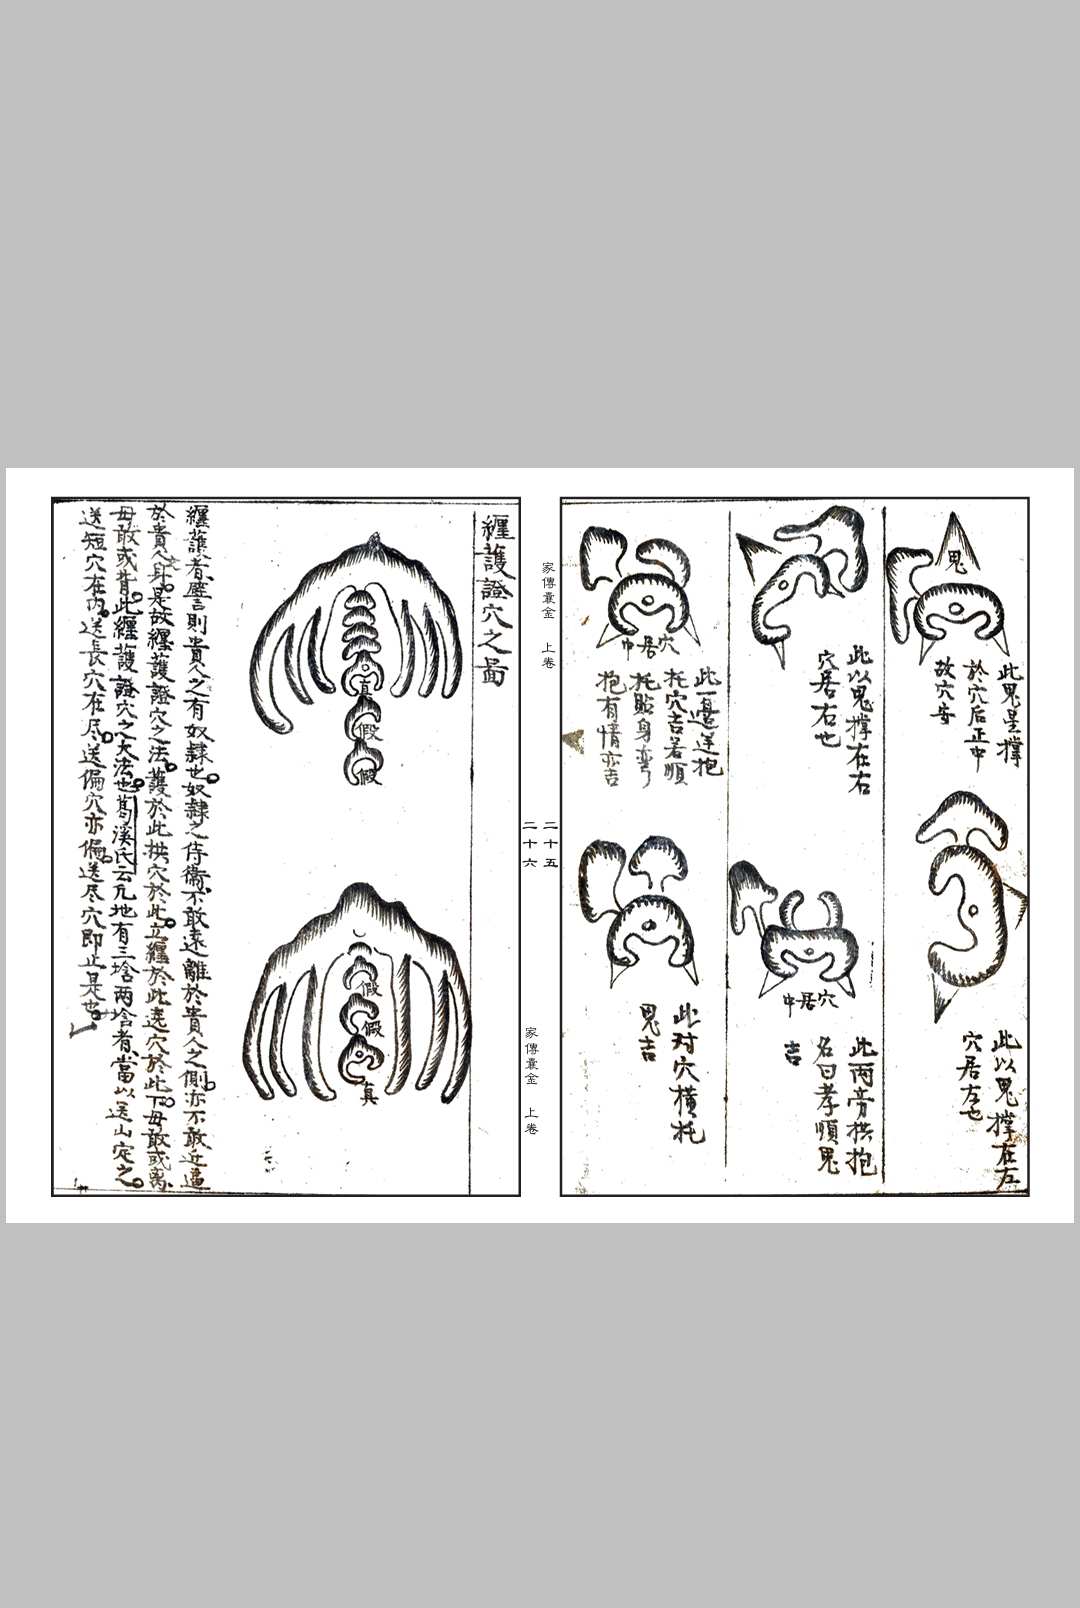 鬼
此鬼星撑
於穴后正中
故穴安
此以鬼撑在左
穴居左也
此以鬼撑在右
穴居右也
穴居中
此两旁拱抱
名曰孝順鬼
吉
穴居中
此一邉逆抱
托穴吉若順
托貼身弯
抱有情亦吉
此对穴横托
鬼吉
家傳囊金 上卷
二十五
二十六
家傳囊金 上卷
纒護證穴之啚
真
假
假
假
假
真
纒護者譬則貴人之有奴隸也奴隸之侍衞不敢遠離於貴人之側亦不敢近逼
於貴人身是故纒護證穴之法護於此拱穴於此立纒於此遶穴於此下毋敢或离
毋敢或背此纒護證穴之大法也葛溪氏云凢地有三垥两垥者當以送山定之
送短穴在内送長穴在尽送偏穴亦偏送尽穴即止是也